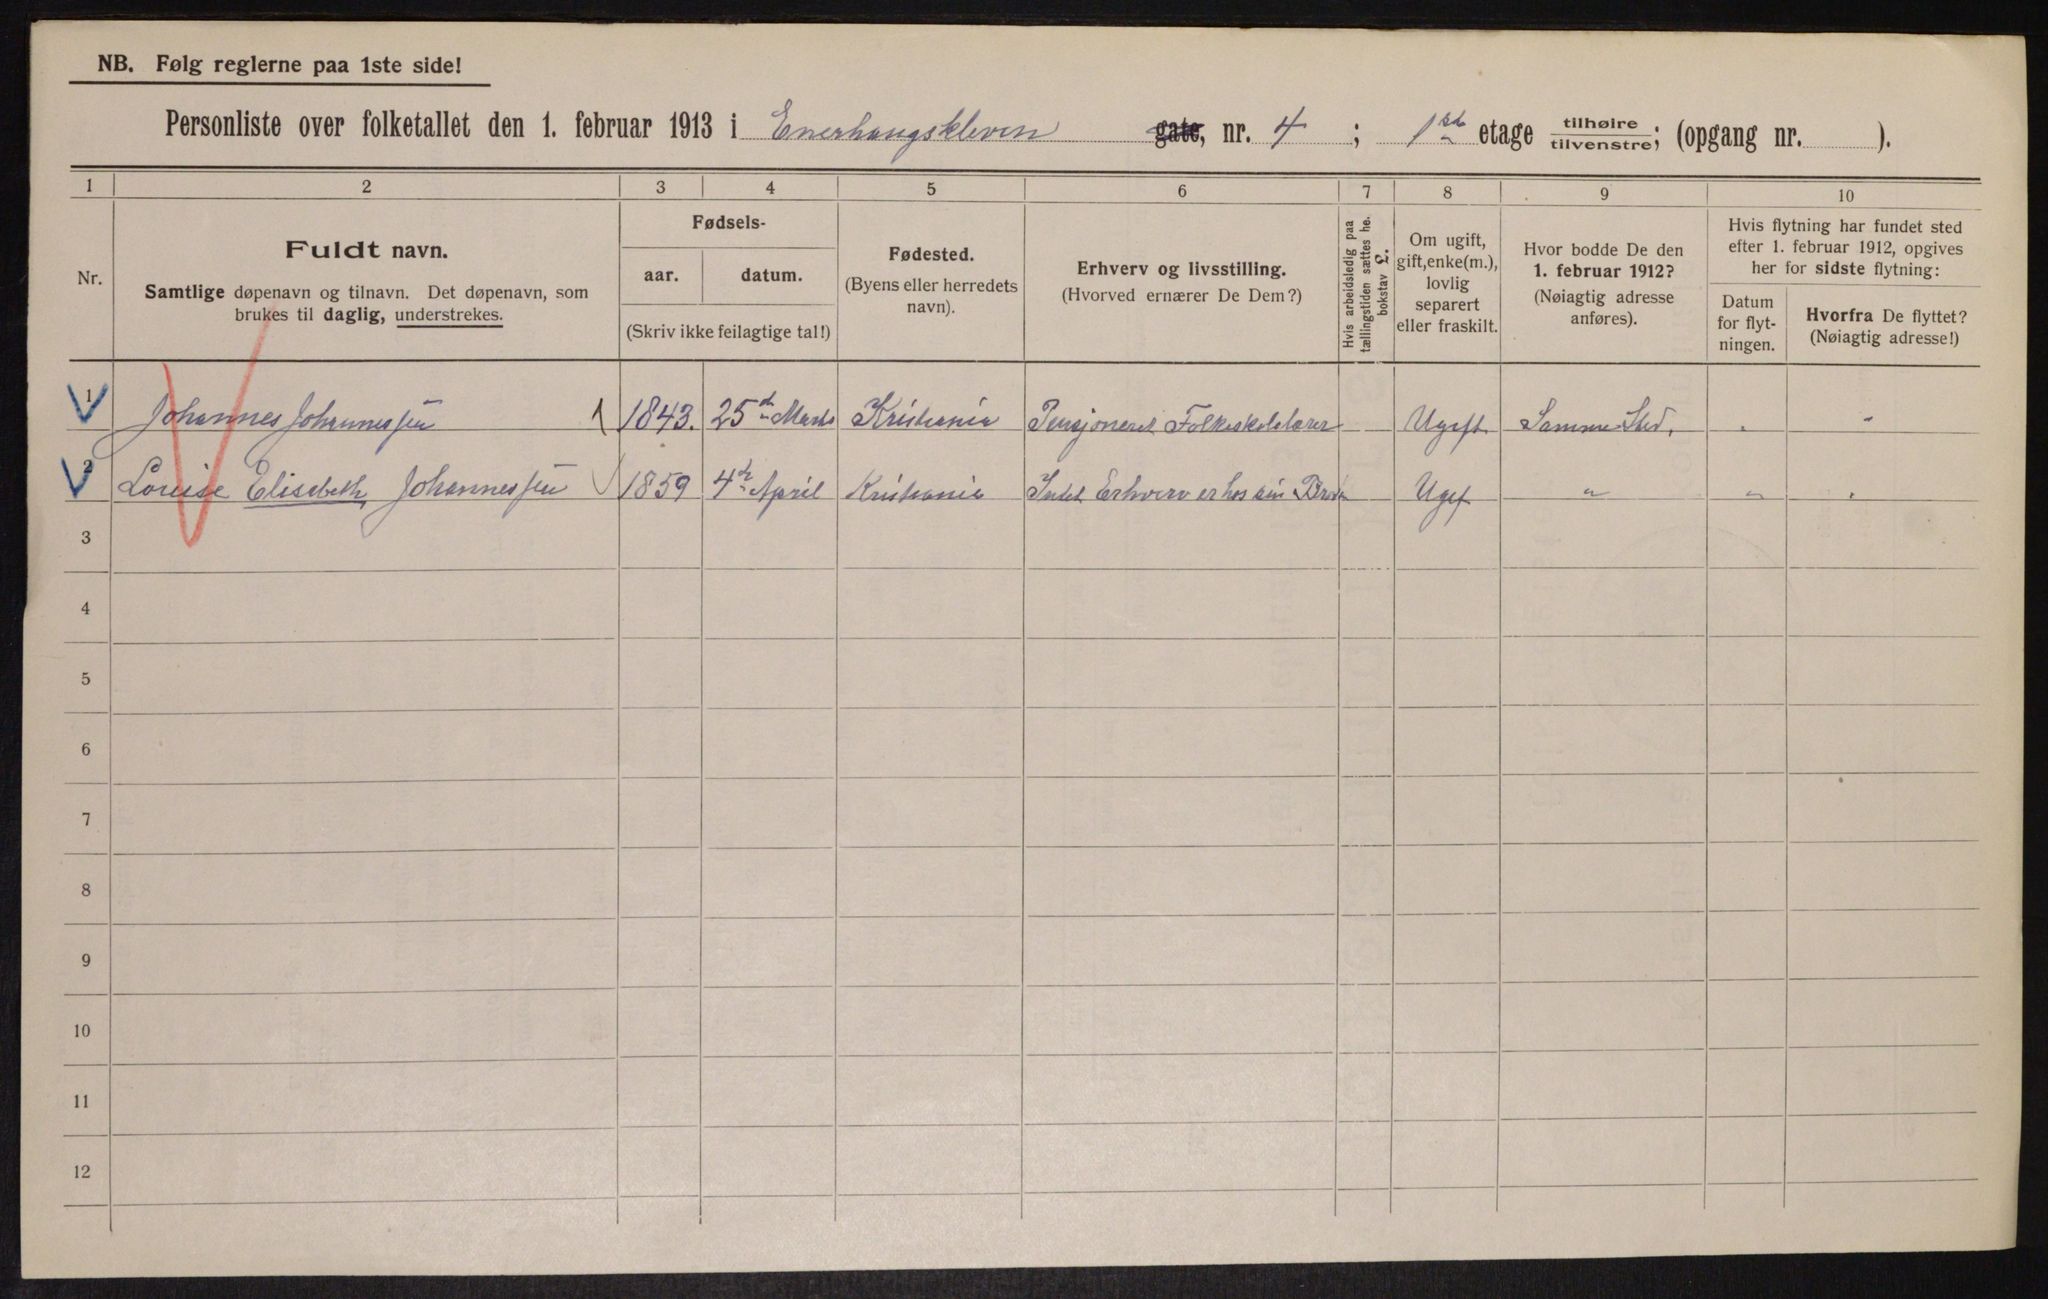 NB. Følg reglerne paa 1ste side!
Personliste over folketallet den 1. februar 1913 i Enerhaugskleven gate, nr. 4 ; 1ste etage tilhøire tilvenstre; (opgang nr. ).
1 2 3 4 5 6 7 8 9 10
Nr.
Fuldt navn.
Samtlige døpenavn og tilnavn. Det døpenavn, som
brukes til daglig, understrekes.
Fødsels-
aar. datum.
(Skriv ikke feilagtige tal!)
Fødested.
(Byens eller herredets
navn).
Erhverv og livsstilling.
(Hvorved ernærer De Dem?)
Hvis arbeidsledig paa
tællingstiden sættes he.
bokstav L.
Om ugift,
gift, enke(m.),
lovlig
separert
eller fraskilt.
Hvor bodde De den
1. februar 1912?
(Nøiagtig adresse
anføres).
Hvis flytning har fundet sted
efter 1. februar 1912, opgives
her for sidste flytning:
Datum
for flyt-
ningen.
Hvorfra De flyttet?
(Nøiagtig adresse!)
1 Johannes Johannessen 1843. 25de Marts Kristiania Pensjoneret Folkeskolelærer Ugift Samme Sted. " "
2 Louise Elisabeth, Johannessen 1859 4de April Kristiania Intet Erhverv er hos sin Broder Ugift " " "
3
4
5
6
7
8
9
10
11
12